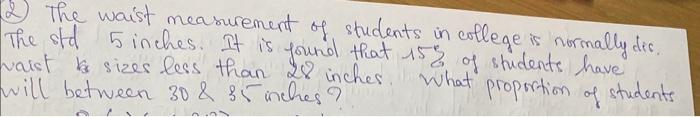 ② The waist measurement of students in college is normally dis.
The std 5 inches. It is found that 15% of students have
waist sizes less than 28 inches. What proportion of students
will between 30 & 35 inches?